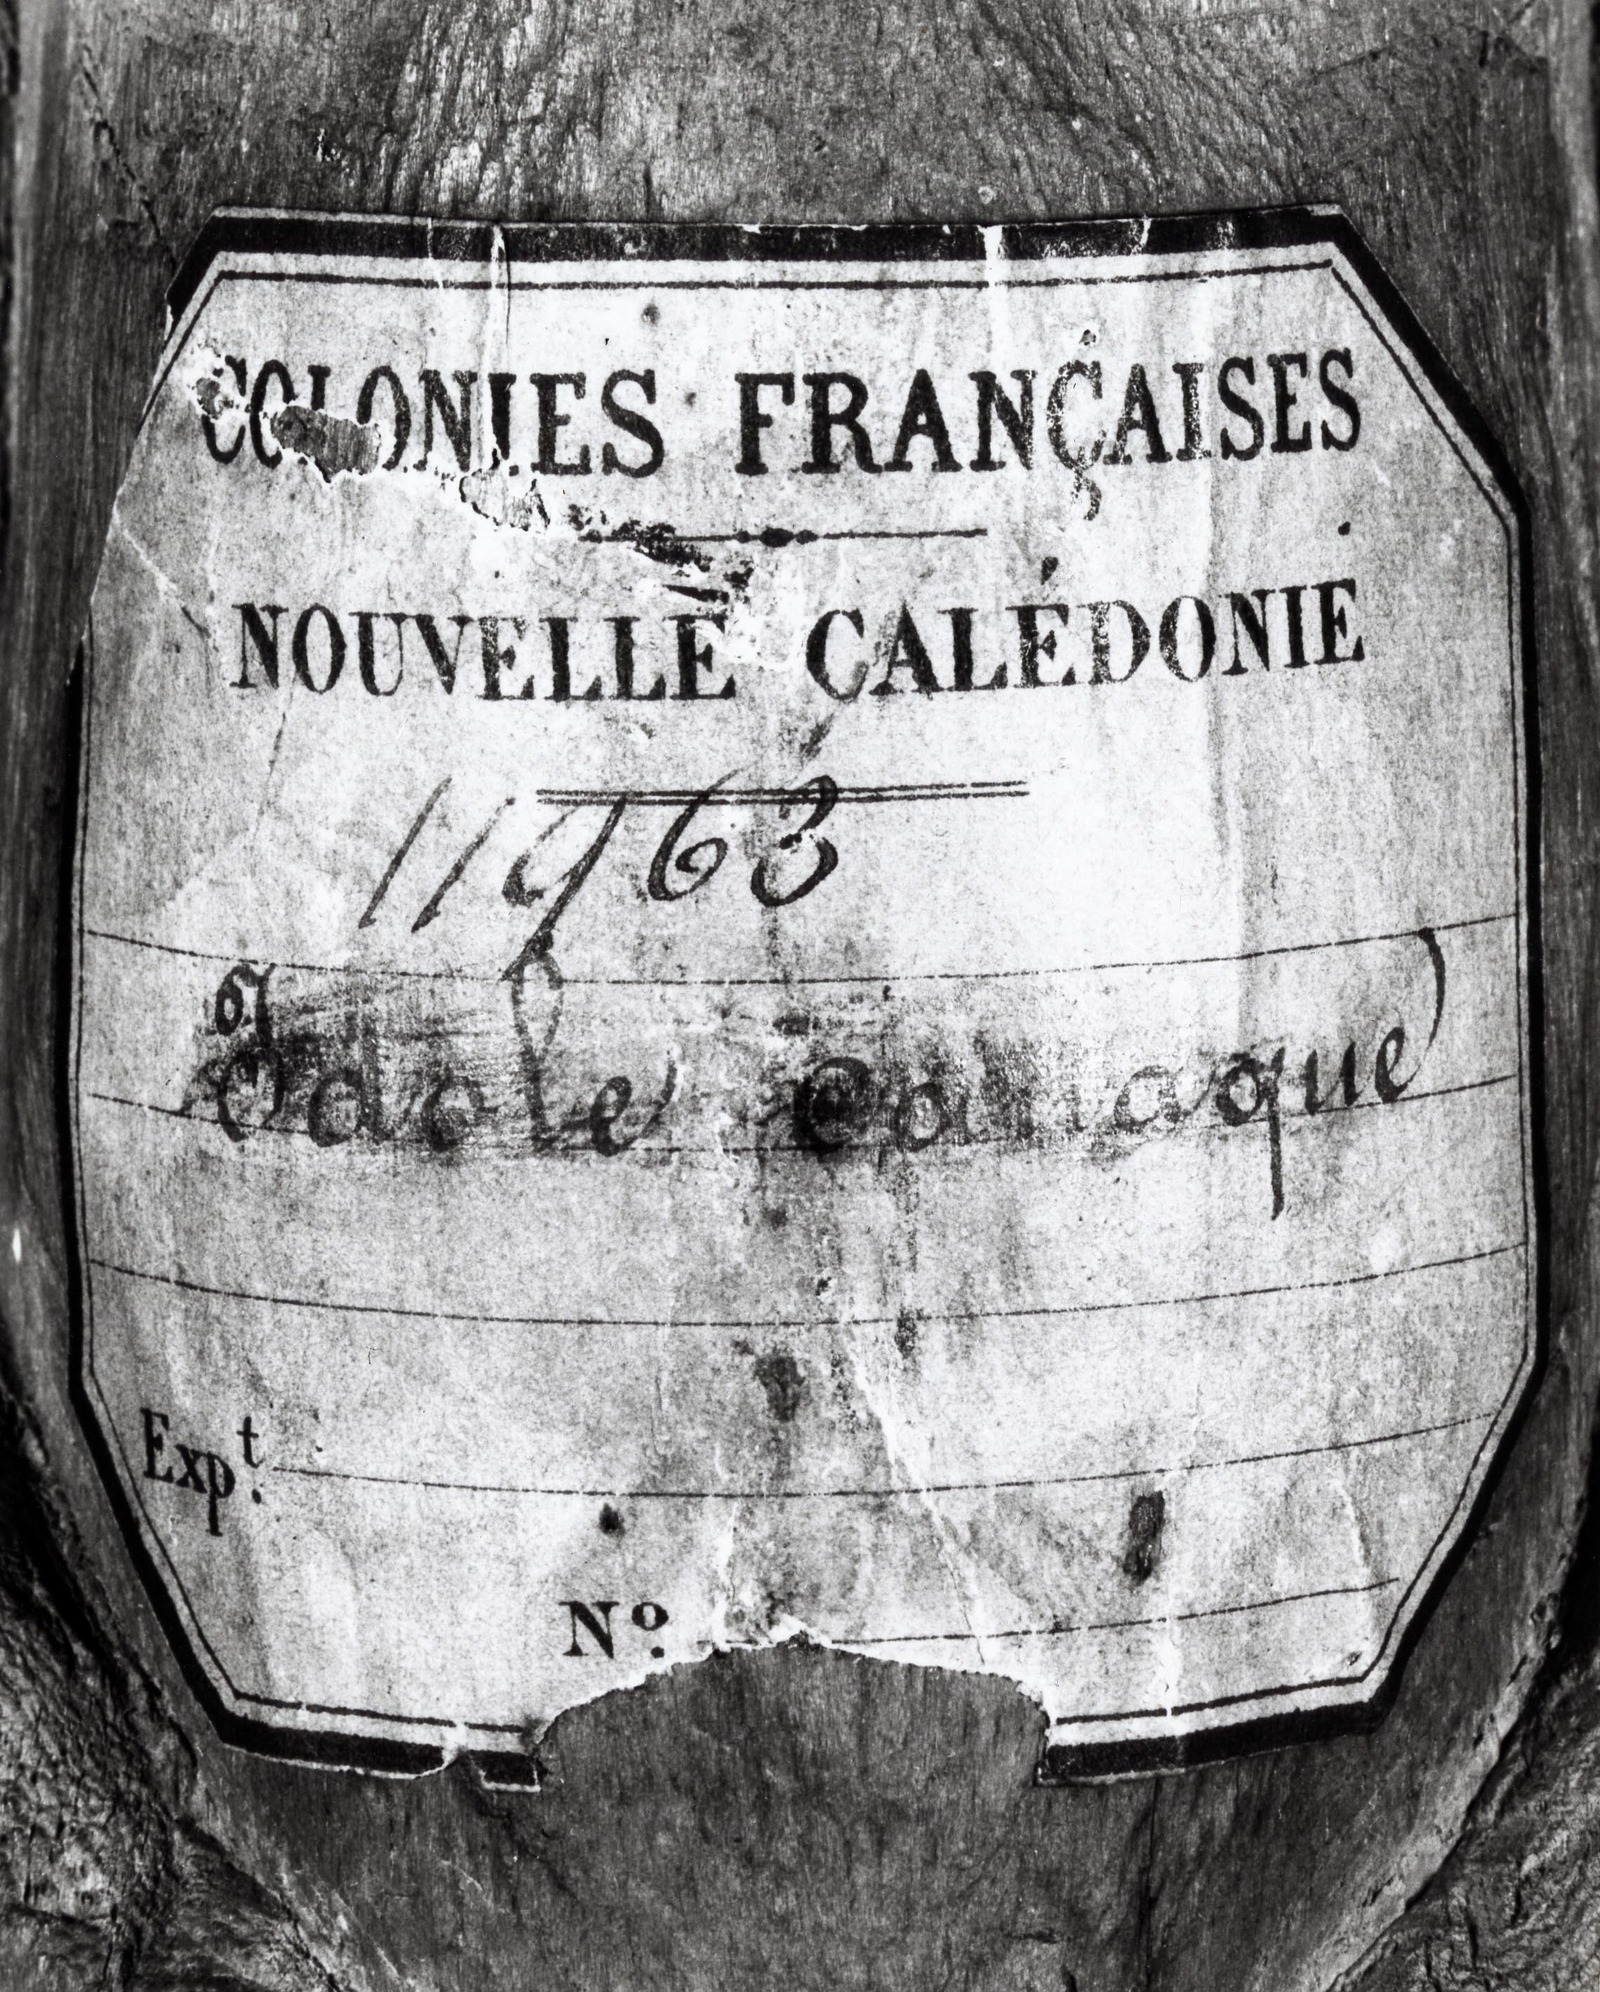 COLONIES FRANÇAISES
NOUVELLE CALÉDONIE
11963
Idole Canaque
Expt.
Nº.